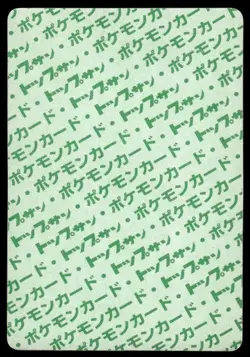 ポケモンカード・
トップサン・ポケモンカード
ポケモンカード・トップサン・
トップサン・ポケモンカード
ポケモンカード・トップサン・
トップサン・ポケモンカード
ポケモンカード・トップサン・
トップサン・ポケモンカード
ポケモンカード・トップサン・
トップサン・ポケモンカード
ポケモンカード・トップサン・
ポケモンカード・